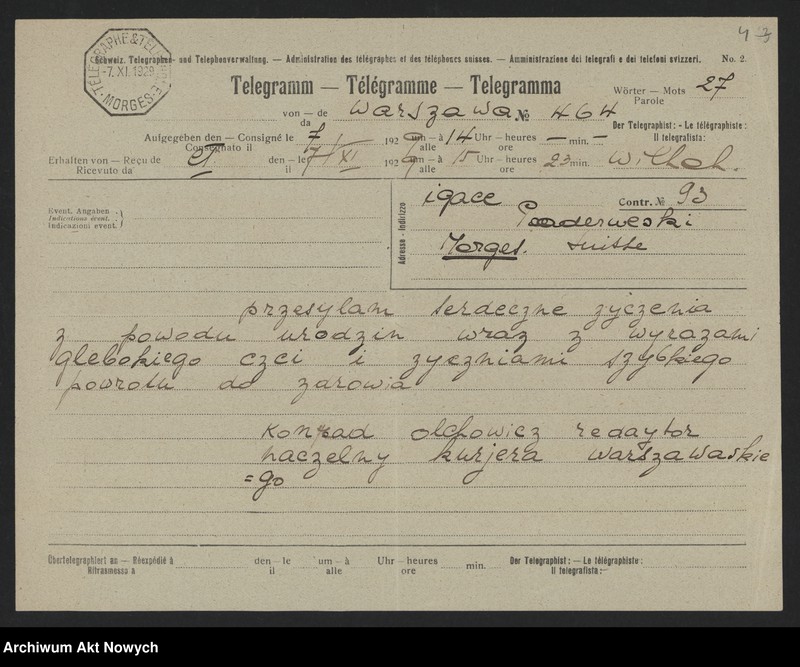 4 3
Schweiz. Telegraphen- und Telephonverwaltung. — Administration des télégraphes et des téléphones suisses. — Amministrazione dei telegrafi e dei telefoni svizzeri. No. 2
TELEGRAPHE & TELEPHONE
-7. XI. 1929
MORGES
Telegramm — Télégramme — Telegramma
Wörter — Mots 27
Parole
von — de Warszawa № 464
da
Der Telegraphist: - Le télégraphiste:
Il telegrafista:
Aufgegeben den — Consigné le 7 / 192 9 um – à 14 Uhr – heures — min. —
Consegnato il alle ore
Erhalten von — Reçu de den – le 7/XI 192 9 um – à 15 Uhr – heures 23 min.
Ricevuto da il alle ore
Event. Angaben
Indications évent.
Indicazioni event.
Adresse - Indirizzo
igace Contr. № 93
Paderweski
Morges. suisse
przesylam serdeczne zyczenia
z powodu urodzin wraz z wyrazami
glebokiego czci i zyczniami szybkiego
powrotu do zdrowia
Konrad olchowicz redaytor
naczelny kurjera warszawaskie
=go
Übertelegraphiert an — Réexpédié à den – le um – à Uhr – heures min. Der Telegraphist: — Le télégraphiste:
Ritrasmesso a il alle ore Il telegrafista:
Archiwum Akt Nowych